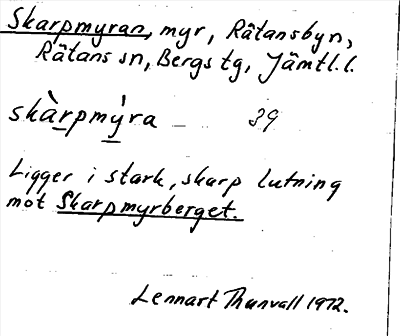 Skarpmyran, myr, Rätansbyn,
Rätans sn, Bergs tg, Jämtl.l.
skàrpmỳra — 39
Ligger i stark, skarp lutning
mot Skarpmyrberget.
Lennart Thunvall 1972.